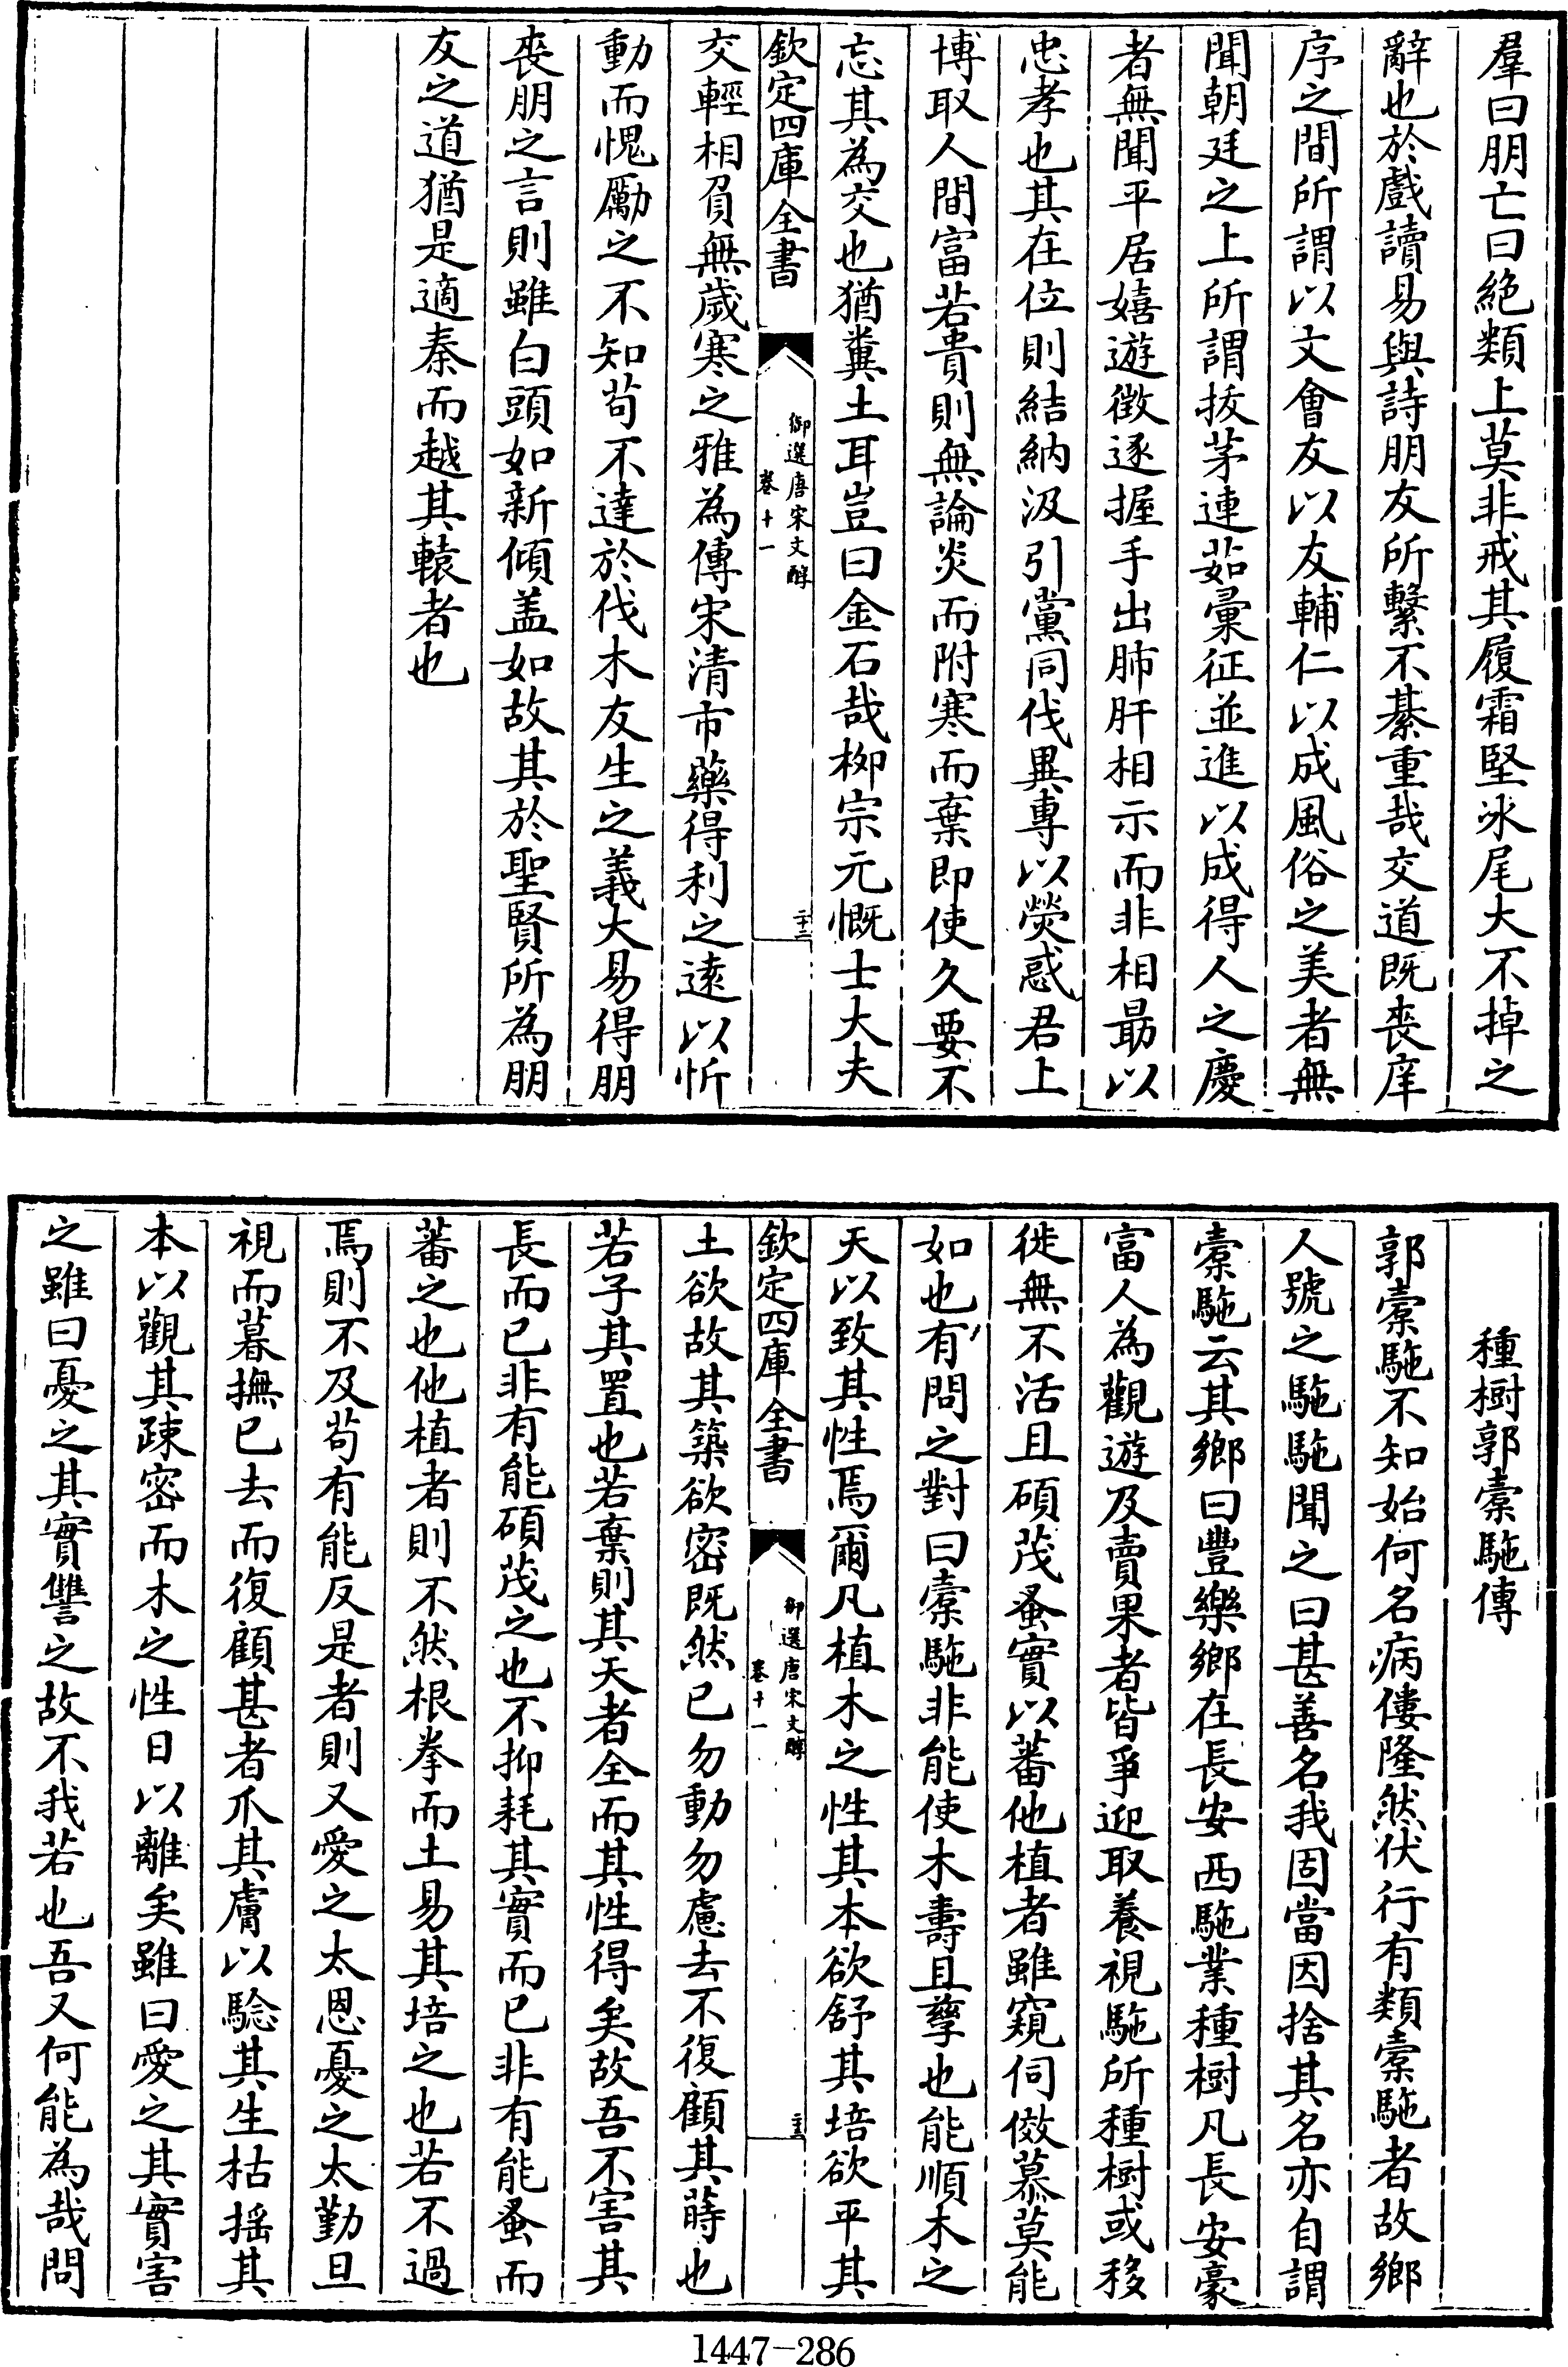 羣曰朋亡曰絶類上莫非戒其履霜堅冰尾大不掉之
辭也於戲讀易與詩朋友所繫不綦重哉交道既喪庠
序之間所謂以文會友以友輔仁以成風俗之美者無
聞朝廷之上所謂拔茅連茹彙征並進以成得人之慶
者無聞平居嬉遊徵逐握手出肺肝相示而非相勗以
忠孝也其在位則結納汲引黨同伐異專以熒惑君上
博取人間富若貴則無論炎而附寒而棄即使久要不
忘其為交也猶糞土耳豈曰金石哉栁宗元慨士大夫
欽定四庫全書
御選唐宋文醇
卷十一
二十二
交輕相負無歲寒之雅為傳宋清市藥得利之逺以忻
動而愧勵之不知苟不達於伐木友生之義大易得朋
喪朋之言則雖白頭如新傾盖如故其於聖賢所為朋
友之道猶是適秦而越其轅者也
種樹郭橐駞傳
郭橐駞不知始何名病僂隆然伏行有類橐駞者故鄉
人號之駞駞聞之曰甚善名我固當因捨其名亦自謂
橐駞云其鄉曰豐樂鄉在長安西駞業種樹凡長安豪
富人為觀遊及賣果者皆爭迎取養視駞所種樹或移
徙無不活且碩茂蚤實以蕃他植者雖窺伺傚慕莫能
如也有問之對曰橐駞非能使木壽且孳也能順木之
天以致其性焉爾凡植木之性其本欲舒其培欲平其
欽定四庫全書
御選唐宋文醇
卷十一
二十三
土欲故其築欲密既然已勿動勿慮去不復顧其蒔也
若子其置也若棄則其天者全而其性得矣故吾不害其
長而已非有能碩茂之也不抑耗其實而已非有能蚤而
蕃之也他植者則不然根拳而土易其培之也若不過
焉則不及苟有能反是者則又愛之太恩憂之太勤旦
視而暮撫已去而復顧甚者爪其膚以驗其生枯揺其
本以觀其疎密而木之性日以離矣雖曰愛之其實害
之雖曰憂之其實讐之故不我若也吾又何能為哉問
1447-286